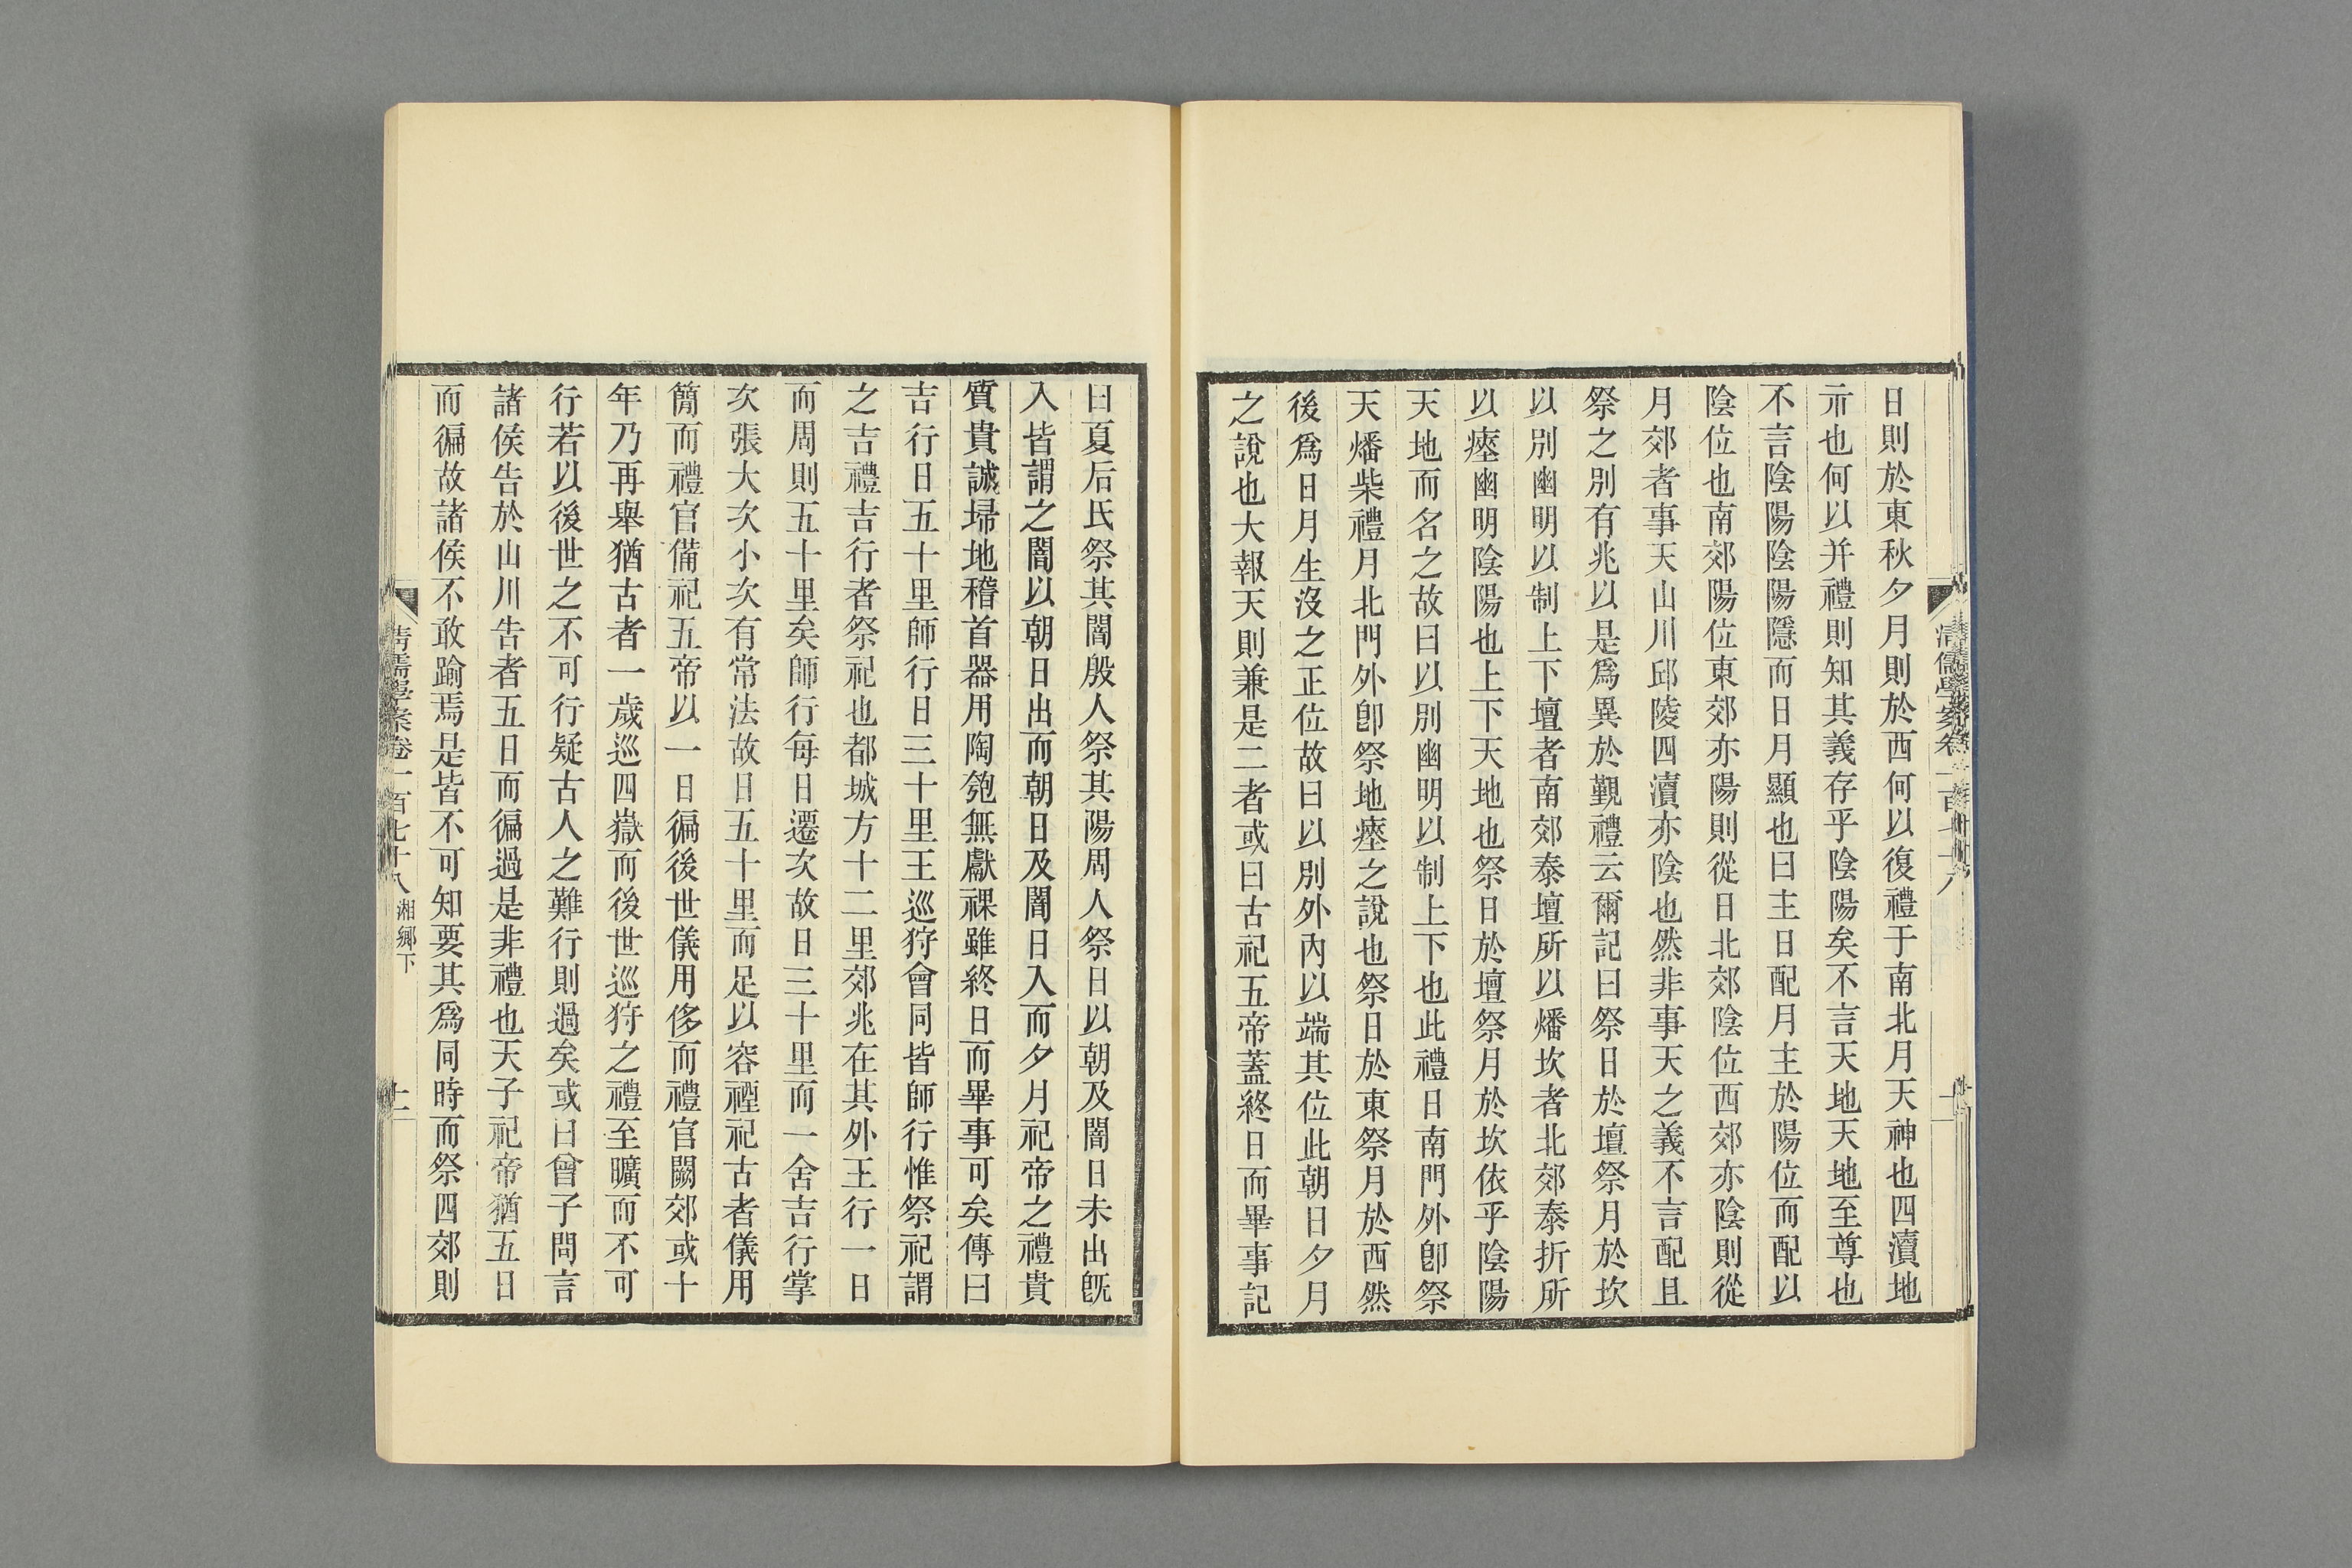 日則於東秋夕月則於西何以復禮于南北月天神也四瀆地
示也何以并禮則知其義存乎陰陽矣不言天地天地至尊也
不言陰陽陰陽隱而日月顯也曰主日配月主於陽位而配以
陰位也南郊陽位東郊亦陽則從日北郊陰位西郊亦陰則從
月郊者事天山川邱陵四瀆亦陰也然非事天之義不言配且
祭之別有兆以是爲異於覲禮云爾記曰祭日於壇祭月於坎
以別幽明以制上下壇者南郊泰壇所以燔坎者北郊泰折所
以瘞幽明陰陽也上下天地也祭日於壇祭月於坎依乎陰陽
天地而名之故曰以別幽明以制上下也此禮日南門外卽祭
天燔柴禮月北門外卽祭地瘞之說也祭日於東祭月於西然
後爲日月生沒之正位故曰以別外內以端其位此朝日夕月
之說也大報天則兼是二者或曰古祀五帝蓋終日而畢事記
曰夏后氏祭其闇殷人祭其陽周人祭日以朝及闇日未出旣
入皆謂之闇以朝日出而朝日及闇日入而夕月祀帝之禮貴
質貴誠埽地稽首器用陶匏無獻祼雖終日而畢事可矣傳曰
吉行日五十里師行日三十里王巡狩會同皆師行惟祭祀謂
之吉禮吉行者祭祀也都城方十二里郊兆在其外王行一日
而周則五十里矣師行每日遷次故日三十里而一舍吉行掌
次張大次小次有常法故日五十里而足以容禋祀古者儀用
簡而禮官備祀五帝以一日徧後世儀用侈而禮官闕郊或十
年乃再舉猶古者一歲巡四嶽而後世巡狩之禮至曠而不可
行若以後世之不可行疑古人之難行則過矣或曰曾子問言
諸侯告於山川告者五日而徧過是非禮也天子祀帝猶五日
而徧故諸侯不敢踰焉是皆不可知要其爲同時而祭四郊則
清儒學案卷一百七十八 湘鄉下